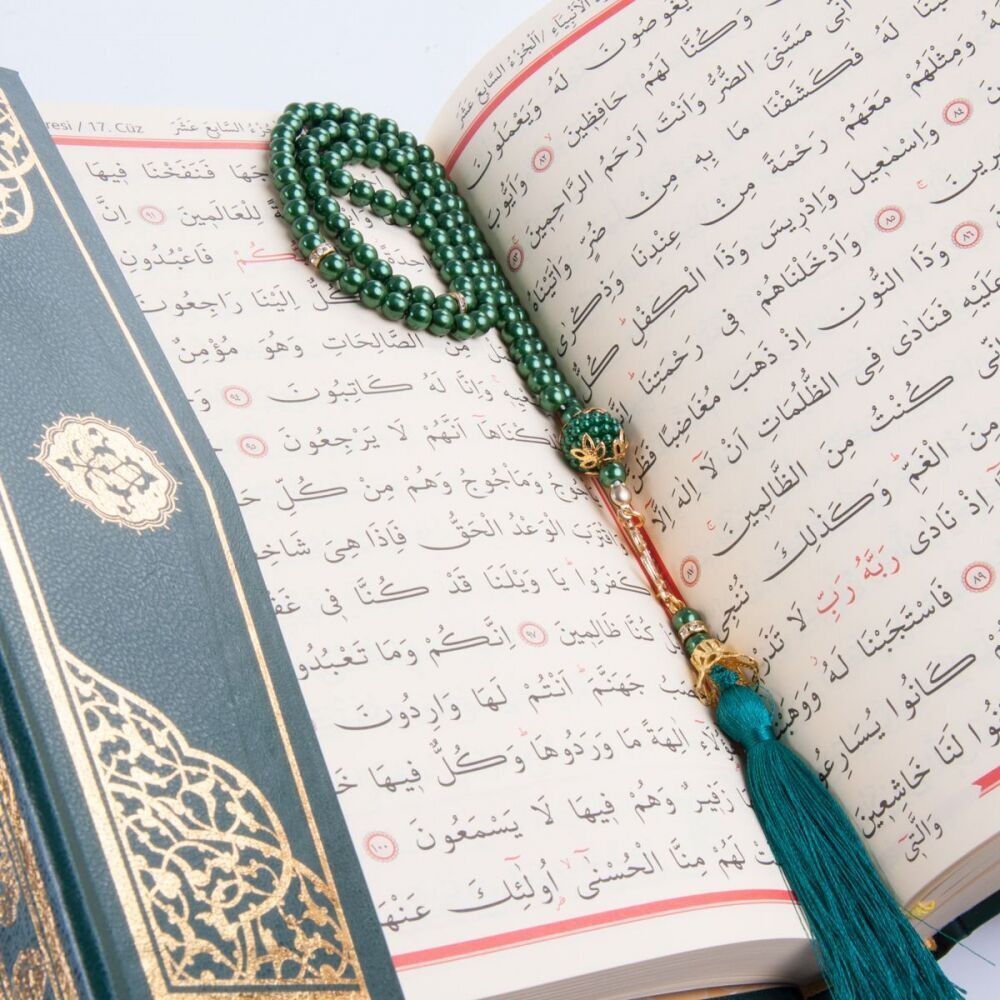 الْاَنْبِيَاءِ /اَلْجُزْءُ السَّابِعَ عَشَرَ
يَغُوصُونَ لَهُ وَيَعْمَلُونَ
وَكُنَّا لَهُمْ حَافِظِينَ ٨٢ وَاَيُّوبَ
اَنِّي مَسَّنِيَ الضُّرُّ وَاَنْتَ اَرْحَمُ الرَّاحِمِينَ ٨٣
لَهُ فَكَشَفْنَا مَا بِهِ مِنْ ضُرٍّ وَاٰتَيْنَاهُ
وَمِثْلَهُمْ مَعَهُمْ رَحْمَةً مِنْ عِنْدِنَا وَذِكْرٰى
٨٤ وَاِسْمٰعِيلَ وَاِدْرِيسَ وَذَا الْكِفْلِ كُلٌّ
٨٥ وَاَدْخَلْنَاهُمْ فِي رَحْمَتِنَا
٨٦ وَذَا النُّونِ اِذْ ذَهَبَ مُغَاضِبًا فَظَنَّ
عَلَيْهِ فَنَادٰى فِي الظُّلُمَاتِ اَنْ لَٓا اِلٰهَ اِلَّٓا
كُنْتُ مِنَ الظَّالِمِينَ ٨٧
مِنَ الْغَمِّ وَكَذٰلِكَ نُنْجِي
اِذْ نَادٰى رَبَّهُ رَبِّ لَا تَذَرْ
٨٩ فَاسْتَجَبْنَا لَهُ وَوَهَبْنَا
كَانُوا يُسَارِعُو
لَنَا خَاشِعِينَ
وَالَّتِٓي
resi / 17. Cüz اَلْجُزْءُ السَّابِعَ عَشَرَ
فَنَفَخْنَا فِيهَا
لِلْعَالَمِينَ ٩١ اِنَّ
فَاعْبُدُونِ
كُلٌّ اِلَيْنَا رَاجِعُونَ
مِنَ الصَّالِحَاتِ وَهُوَ مُؤْمِنٌ
وَاِنَّا لَهُ كَاتِبُونَ ٩٤
اَنَّهُمْ لَا يَرْجِعُونَ ٩٥
وَمَأْجُوجُ وَهُمْ مِنْ كُلِّ
الْوَعْدُ الْحَقُّ فَاِذَا هِيَ
كَفَرُوا يَا وَيْلَنَا قَدْ كُنَّا فِي
كُنَّا ظَالِمِينَ ٩٧ اِنَّكُمْ وَمَا تَعْبُدُو
جَهَنَّمَ اَنْتُمْ لَهَا وَارِدُونَ
اٰلِهَةً مَا وَرَدُوهَا وَكُلٌّ فِيهَا
زَفِيرٌ وَهُمْ فِيهَا لَا يَسْمَعُونَ ١٠٠
لَهُمْ مِنَّا الْحُسْنٰٓى اُولٰٓئِكَ عَنْهَا